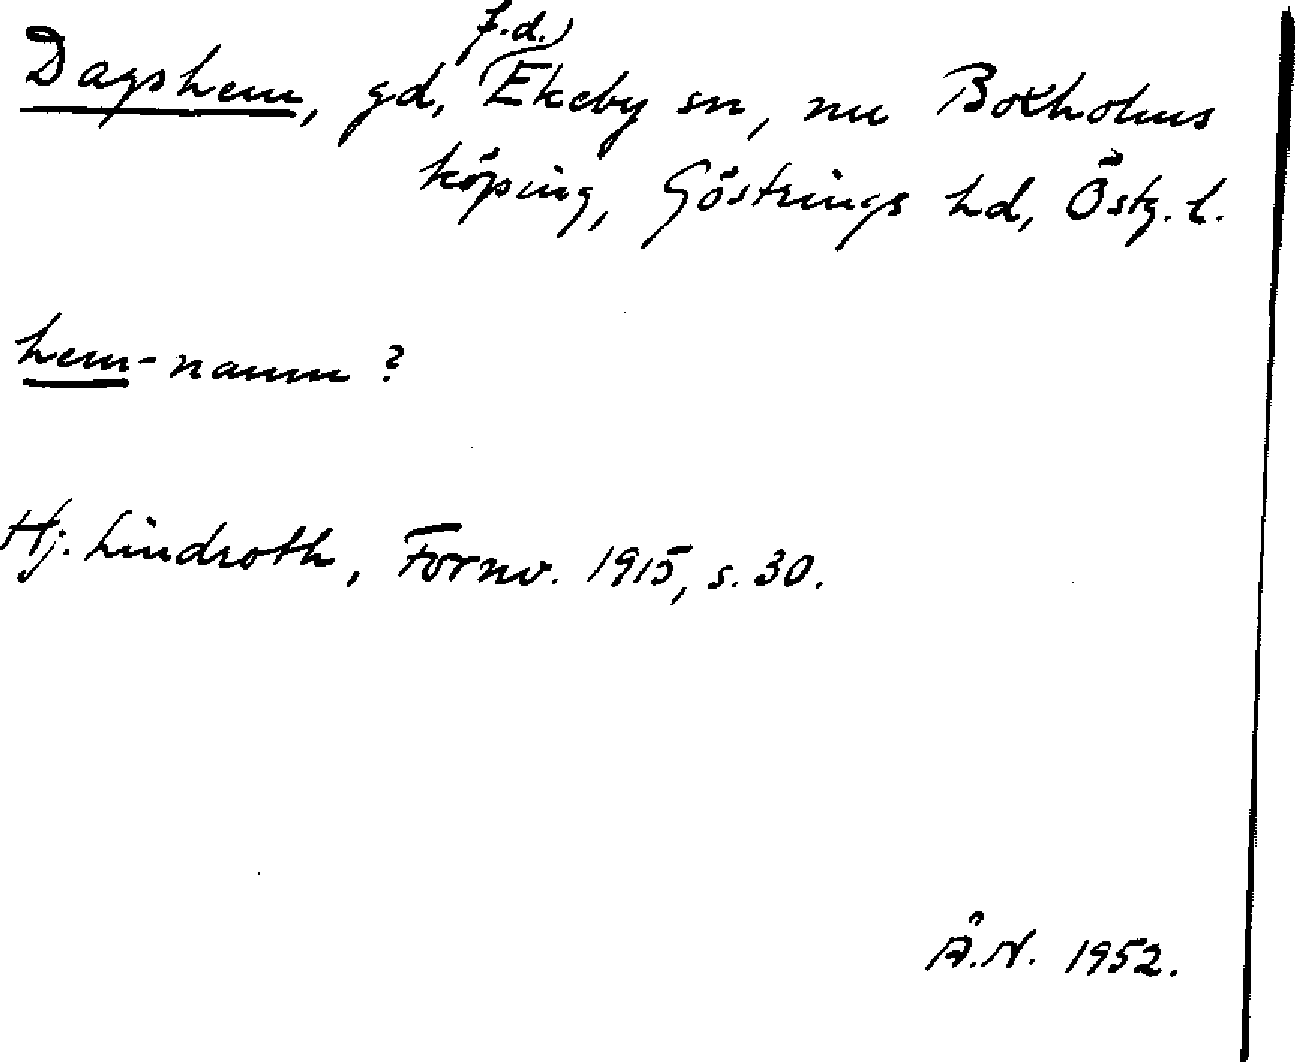 Dagshem, gd, f.d. Ekeby sn, nu Boxholms
köping, Göstrings hd, Östg. l.
hem-namn?
Hj. Lindroth, Fornv. 1915, s. 30.
Å.N. 1952.